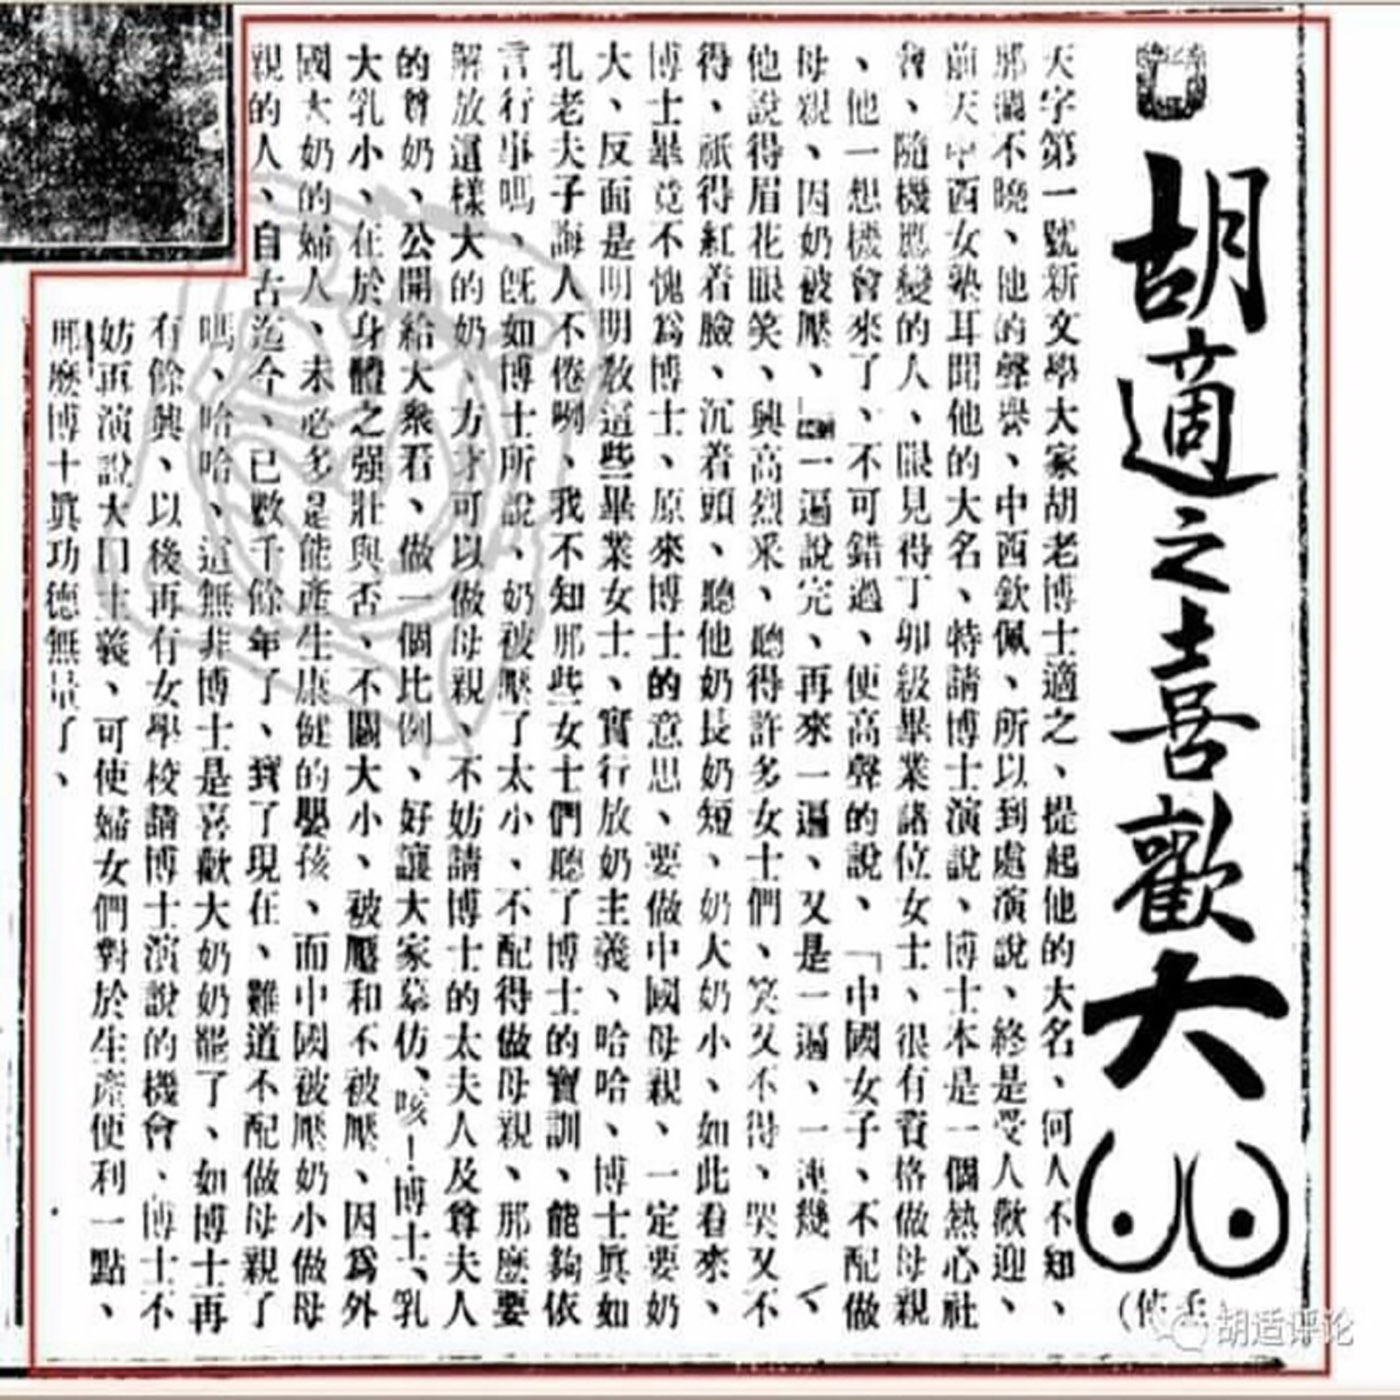 胡適之喜歡大
天字第一號新文學大家胡老博士適之、提起他的大名、何人不知、
那個不曉、他的聲譽、中西欽佩、所以到處演說、終是受人歡迎、
前天中西女塾耳聞他的大名、特請博士演說、博士本是一個熱心社
會、隨機應變的人、眼見得丁卯級畢業諸位女士、很有資格做母親
、他一想機會來了、不可錯過、便高聲的說、「中國女子、不配做
母親、因奶被壓、一遍說完、再來一遍、又是一遍、一連幾
他說得眉花眼笑、興高烈采、聽得許多女士們、笑又不得、哭又不
得、祇得紅着臉、沉着頭、聽他奶長奶短、奶大奶小、如此看來、
博士畢竟不愧為博士、原來博士的意思、要做中國母親、一定要奶
大、反面是明明教這些畢業女士、實行放奶主義、哈哈、博士真如
孔老夫子誨人不倦咧、我不知那些女士們聽了博士的寶訓、能夠依
言行事嗎、既如博士所說、奶被壓了太小、不配得做母親、那麼要
解放這樣大的奶、方才可以做母親、不妨請博士的太夫人及尊夫人
的尊奶、公開給大衆看、做一個比例、好讓大家摹仿、咳！博士、乳
大乳小、在於身體之强壯與否、不關大小、被壓和不被壓、因為外
國大奶的婦人、未必多是能產生康健的嬰孩、而中國被壓奶小做母
親的人、自古迄今、已數千餘年了、到了現在、難道不配做母親了
嗎、哈哈、這無非博士是喜歡大奶奶罷了、如博士再
有餘興、以後再有女學校請博士演說的機會、博士不
妨再演說大口主義、可使婦女們對於生產便利一點、
那麼博士真功德無量了、
胡适评论